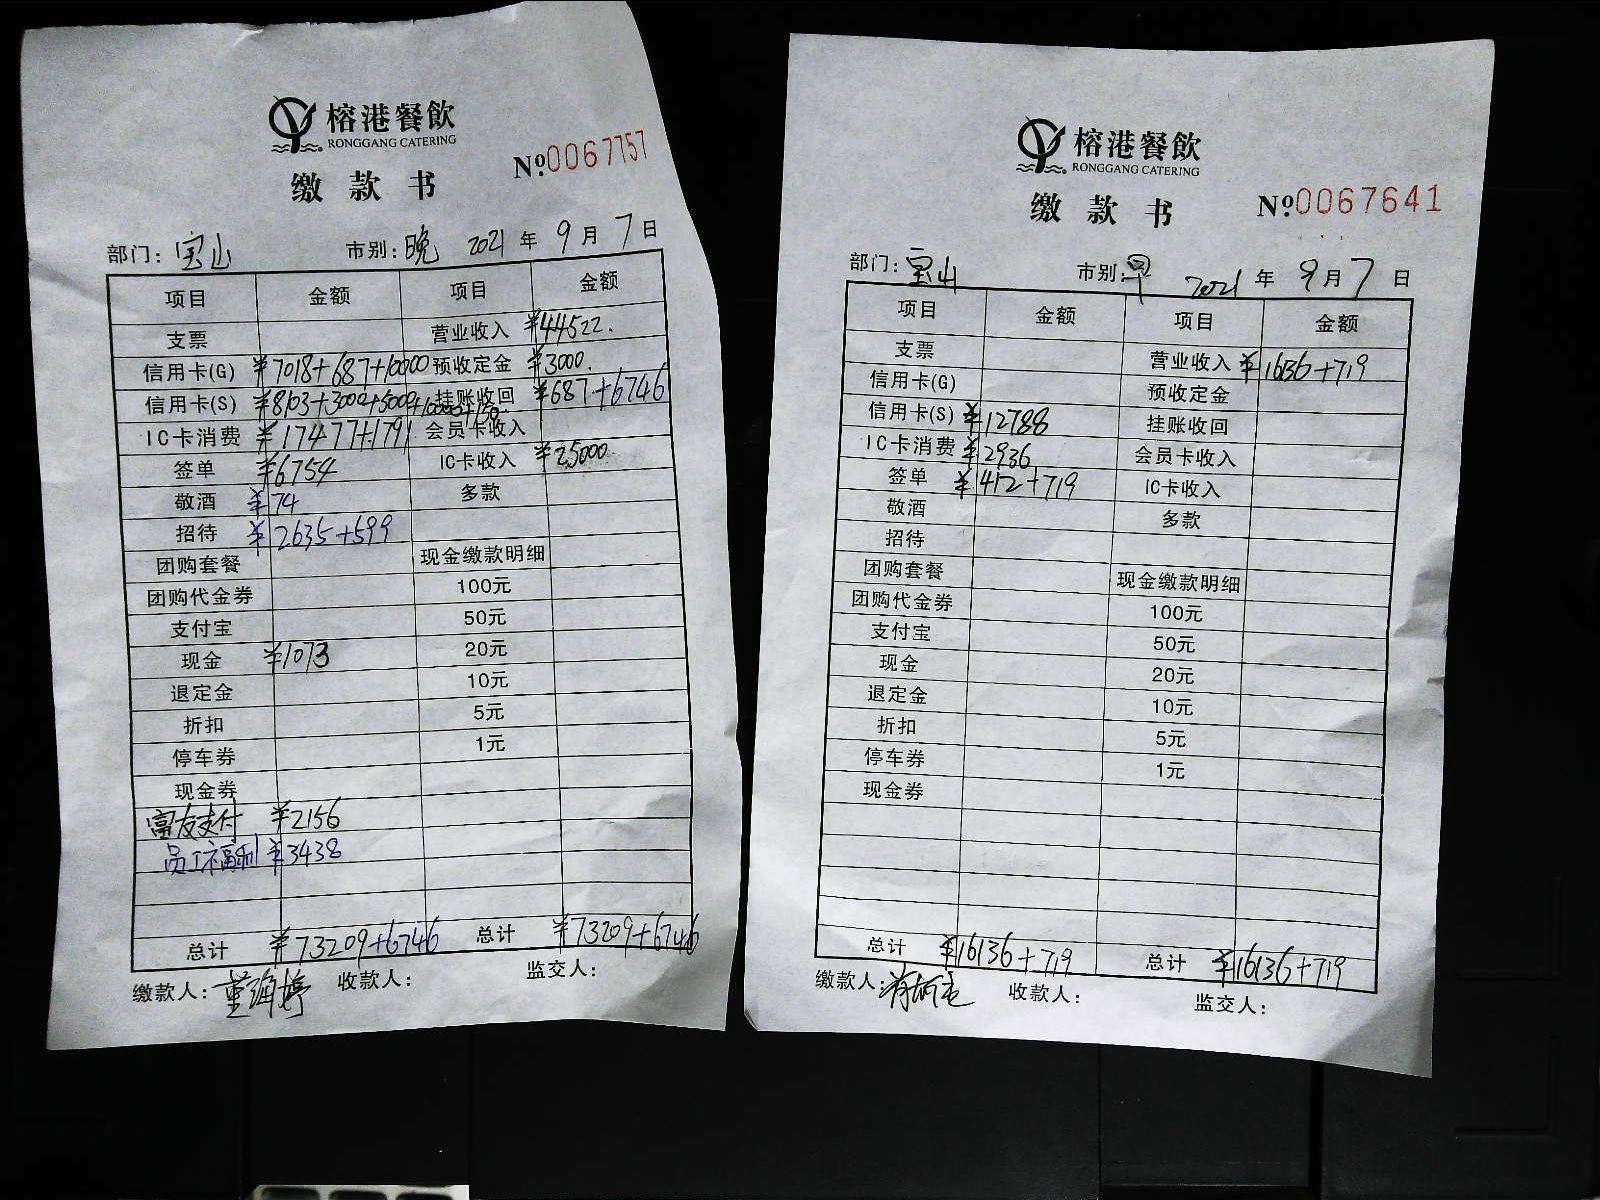 榕港餐飲
RONGGANG CATERING
缴款书
№0067757
部门：宝山 市别：晚 2021年9月7日
项目 金额 项目 金额
支票 营业收入 ¥44522.
信用卡(G) ¥7018+687+10000 预收定金 ¥3000.
信用卡(S) ¥8103+3000+5000+10000+150 挂账收回 ¥687+6746
IC卡消费 ¥17477+1791 会员卡收入
签单 ¥6754 IC卡收入 ¥25000
敬酒 ¥74 多款
招待 ¥2635+599
团购套餐 现金缴款明细
团购代金券 100元
支付宝 50元
现金 ¥1073 20元
退定金 10元
折扣 5元
停车券 1元
现金券
富友支付 ¥2156
员工福利 ¥3438
总计 ¥73209+6746 总计 ¥73209+6746
缴款人：董海婷 收款人： 监交人：
榕港餐飲
RONGGANG CATERING
缴款书
№0067641
部门：宝山 市别：早 2021年9月7日
项目 金额 项目 金额
支票 营业收入 ¥16136+719
信用卡(G) 预收定金
信用卡(S) ¥12788 挂账收回
IC卡消费 ¥2936 会员卡收入
签单 ¥412+719 IC卡收入
敬酒 多款
招待
团购套餐 现金缴款明细
团购代金券 100元
支付宝 50元
现金 20元
退定金 10元
折扣 5元
停车券 1元
现金券
总计 ¥16136+719 总计 ¥16136+719
缴款人： 收款人： 监交人：